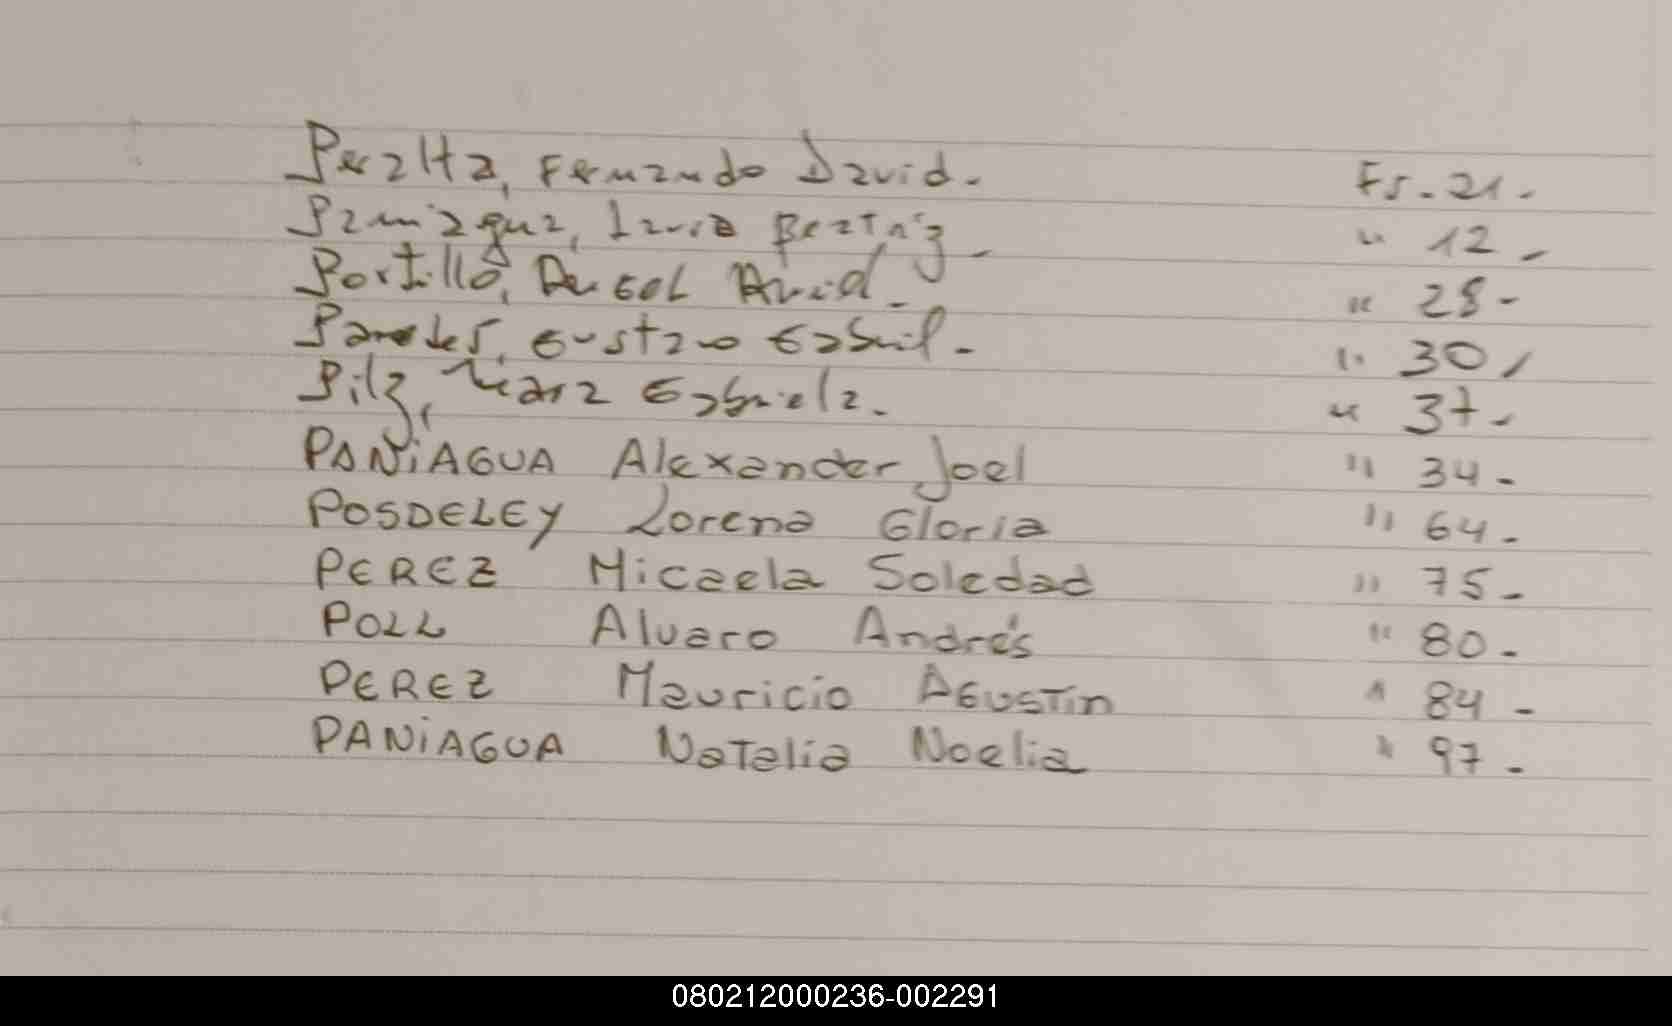 Peralta, Fernando David. Fs. 21.
Paniagua, Beatriz " 12 -
Portillo, David - " 28 -
Paredes, Gustavo Gabriel. - " 30 -
Pilz, Gabriela. " 37 -
PANiAGUA Alexander Joel " 34 -
POSDELEY Lorena Gloria " 64 -
PEREZ Micaela Soledad " 75 -
POLL Alvaro Andrés " 80 -
PEREZ Mauricio AGUSTin " 84 -
PANiAGUA Natalia Noelia " 97 -
080212000236-002291